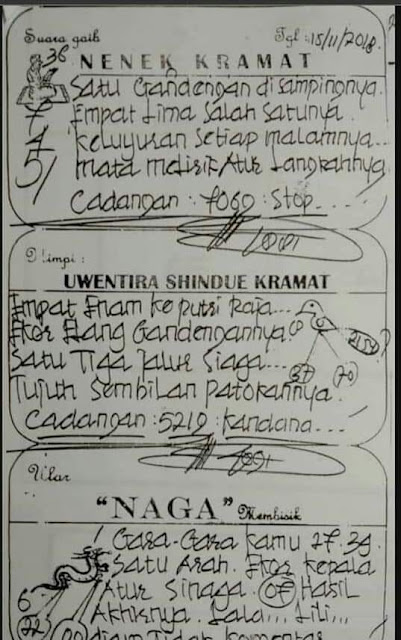 Suara gaib
Tgl : 15/11/2018.
36
NENEK KRAMAT
Satu Gandengan disampingnya.
Empat Lima Salah Satunya.
7
Keluyusan Setiap malamnya...
4
mata melisik Atur Langkahnya
5
Cadangan : 7069 : Stop....
Mimpi :
UWENTIRA SHINDUE KRAMAT
Empat Enam ke putri Raja...
Ekor Elang Gandengannya
Satu Tiga Jalur Siaga...
37
70
Tujuh Sembilan Patokannya.
Cadangan : 5219 : Kandana...
Ular
"NAGA" Membisik
Gara-Gara kamu 27.39.
Satu Arah. Ekor kepala
Atur Singa. 07 Hasil
6
Akhirnya. Lala... Lili...
22
diam Tidak